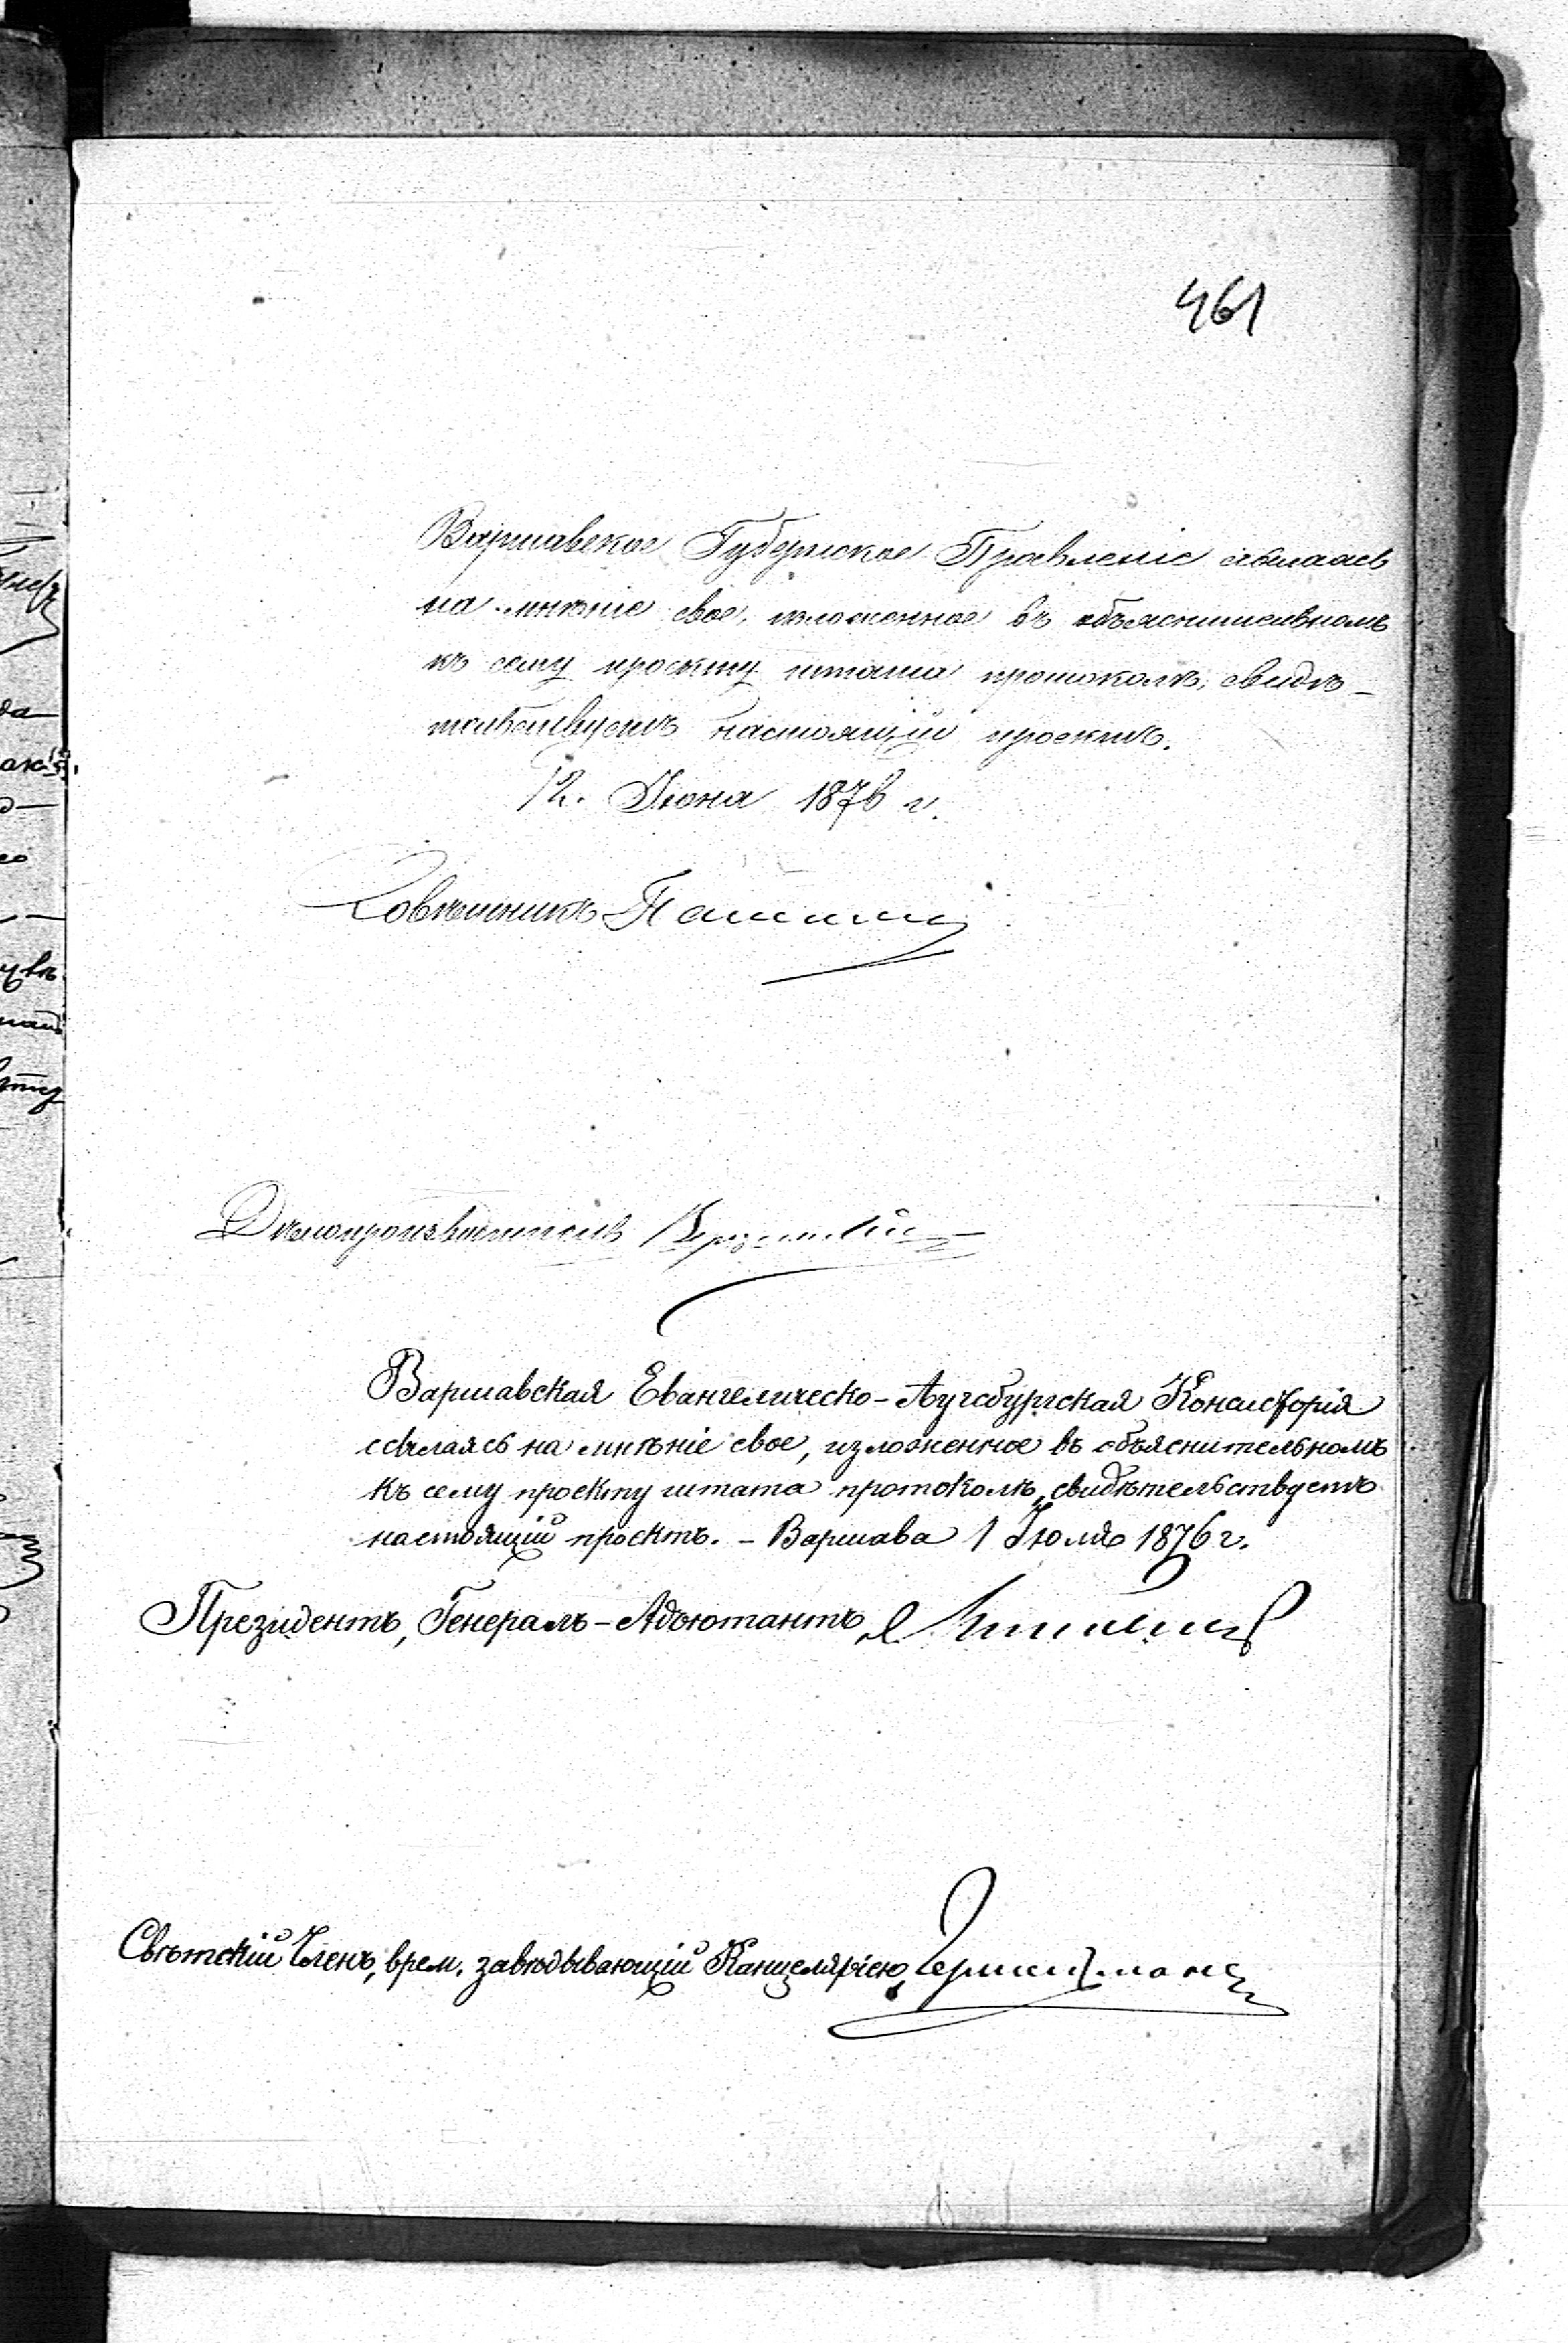 461
Варшавское Губернское Правленіе ссылаясь
на мнѣніе свое, изложенное въ объяснительномъ
къ сему проэкту штата протоколѣ, свидѣ-
тельствуетъ настоящій проектъ.
12. Іюня 1876 г.
Совѣтникъ
Дѣлопроизводитель
Варшавская Евангелическо-Аугсбургская Консисторія
ссылаясь на мнѣніе свое, изложенное въ объяснительномъ
къ сему проекту штата протоколѣ, свидѣтельствуетъ
настоящій проектъ. - Варшава 1 Іюля 1876 г.
Президентъ, Генералъ-Адъютантъ
Свѣтскій Членъ, врем. завѣдывающій Канцеляріею